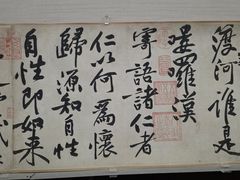 渡河誰是
嘍羅漢
寄語諸仁者
仁以何為懷
歸源知自性
自性即如來